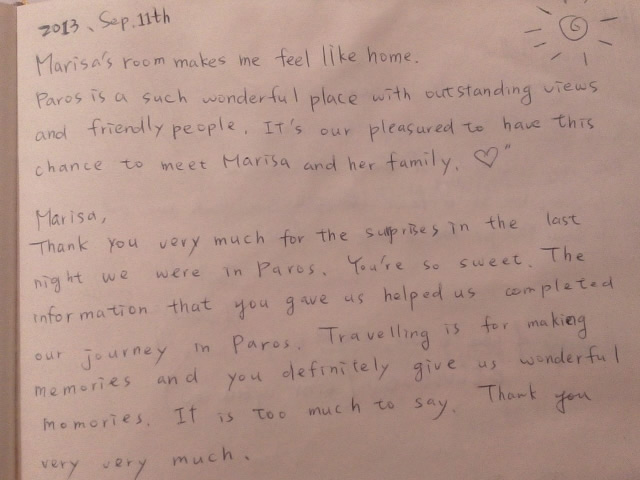 2013、Sep.11th
Marisa's room makes me feel like home.
Paros is a such wonderful place with outstanding views
and friendly people. It's our pleasured to have this
chance to meet Marisa and her family. ♡"
Marisa,
Thank you very much for the surprises in the last
night we were in Paros. You're so sweet. The
information that you gave us helped us completed
our journey in Paros. Travelling is for making
memories and you definitely give us wonderful
momories. It is too much to say. Thank you
very very much.